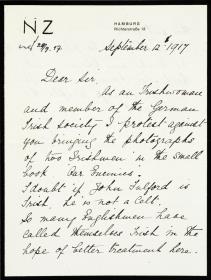 NIZ
HAMBURG
Richterstraße 18
September 12th 1917
Dear Sir,
As an Irishwoman
and member of the German
Irish Society I protest against
you bringing the photographs
of two Irishmen in the small
book Our Enemies.
I doubt if John Fulford is
Irish. he is not a Celt.
So many Englishmen have
called themselves Irish in the
hope of better treatment here.